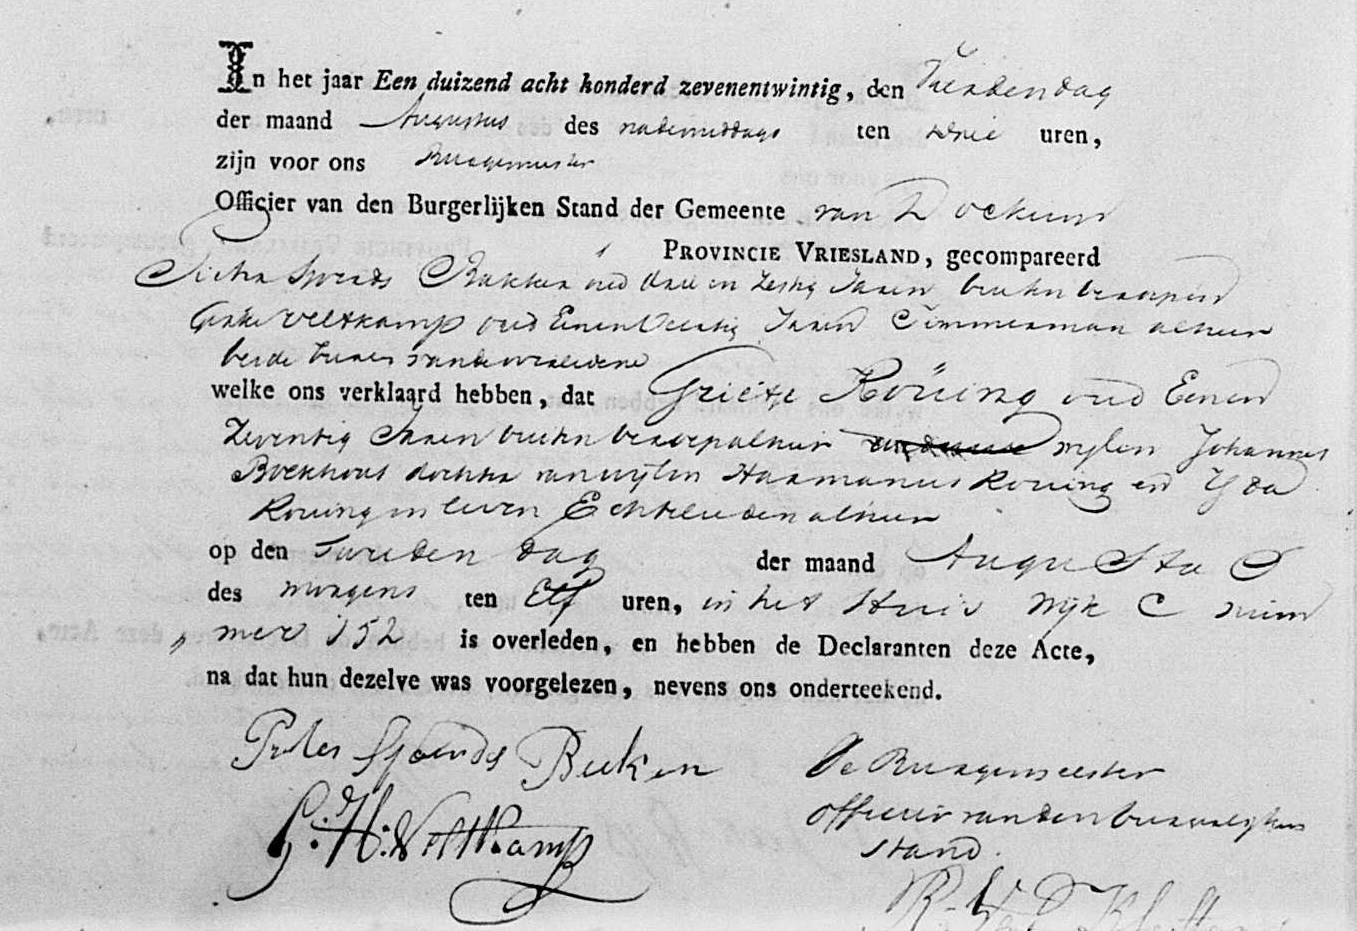 In het jaar Een duizend acht honderd zevenentwintig, den Vierden dag
der maand Augustus des nademiddags ten drie uren,
zijn voor ons Burgemeester
Officier van den Burgerlijken Stand der Gemeente van Dockum
PROVINCIE VRIESLAND, gecompareerd
Sjoerds oud drie en Zestig Jaren buiten beroep en
Veltkamp oud Eenen Veertig Jaren Timmerman alhier
beide buren van de overledene
welke ons verklaard hebben, dat Grietje Röuing oud Eenen
Zeventig Jaren buiten beroep alhier wylen Johannes
Boekhout dochter van wylen Harmanus Rouing en Yda
Rouing in leven Echtelieden alhier
op den Tweeden dag der maand Augustus
des morgens ten Elf uren, in het Huis Wijk C num
„ mer 152 is overleden, en hebben de Declaranten deze Acte,
na dat hun dezelve was voorgelezen, nevens ons onderteekend.
Pieter Sjoerds
G. H. Veltkamp
De Burgemeester
officier van den burgerlijken
stand.